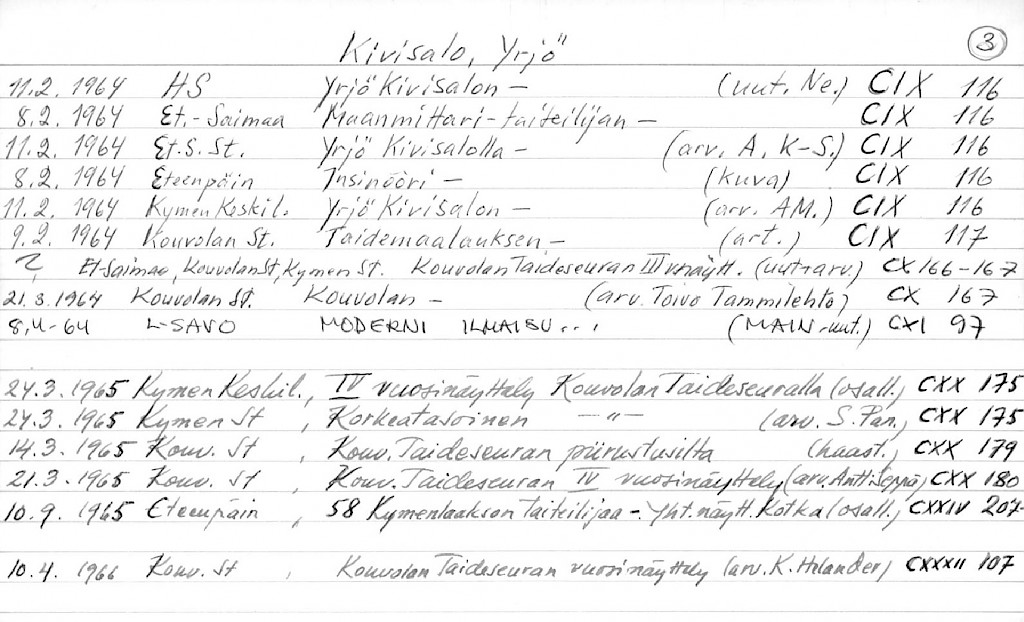 Kivisalo, Yrjö 3
11.2. 1964 HS Yrjö Kivisalon – (uut. Ne.) CIX 116
8.2. 1964 Et.-Saimaa Maanmittari-taiteilijan – CIX 116
11.2. 1964 Et.S. St. Yrjö Kivisalolla – (arv. A. K-S.) CIX 116
8.2. 1964 Eteenpäin Insinööri – (kuva) CIX 116
11.2. 1964 Kymen Keskil. Yrjö Kivisalon – (arv. AM.) CIX 116
9.2. 1964 Kouvolan St. Taidemaalauksen – (art.) CIX 117
? Et-Saimaa, Kouvolan St, Kymen St. Kouvolan Taideseuran III vnäytt. (uut+arv.) CX 166-167
21.3.1964 Kouvolan St. Kouvolan – (arv. Toivo Tammilehto) CX 167
8.4-64 L-SAVO MODERNI ILMAISU... (MAIN-uut.) CXI 97
24.3. 1965 Kymen Keskil., IV vuosinäyttely Kouvolan Taideseuralla (osall.) CXX 175
24.3. 1965 Kymen St , Korkeatasoinen —"— (arv. S. Pan.) CXX 175
14.3. 1965 Kouv. St , Kouv. Taideseuran piirustusilta (haast.) CXX 179
21.3 1965 Kouv. St , Kouv. Taideseuran IV vuosinäyttely (arv. Antti Seppä) CXX 180
10.9. 1965 Eteenpäin , 58 Kymenlaakson taiteilijaa -. Yht.näytt. Kotka (osall.) CXXIV 207
10.4. 1966 Kouv. St , Kouvolan Taideseuran vuosinäyttely (arv. K. Helander) CXXXII 107